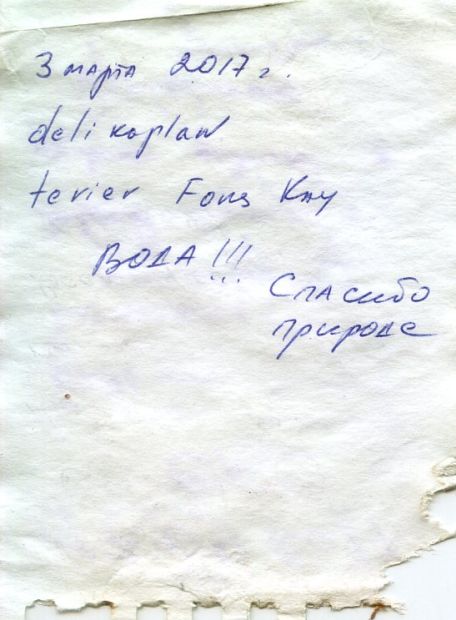 3 марта 2017 г.
deli kaplan
terier Fong Kmy
ВОДА!!!
Спасибо
природе